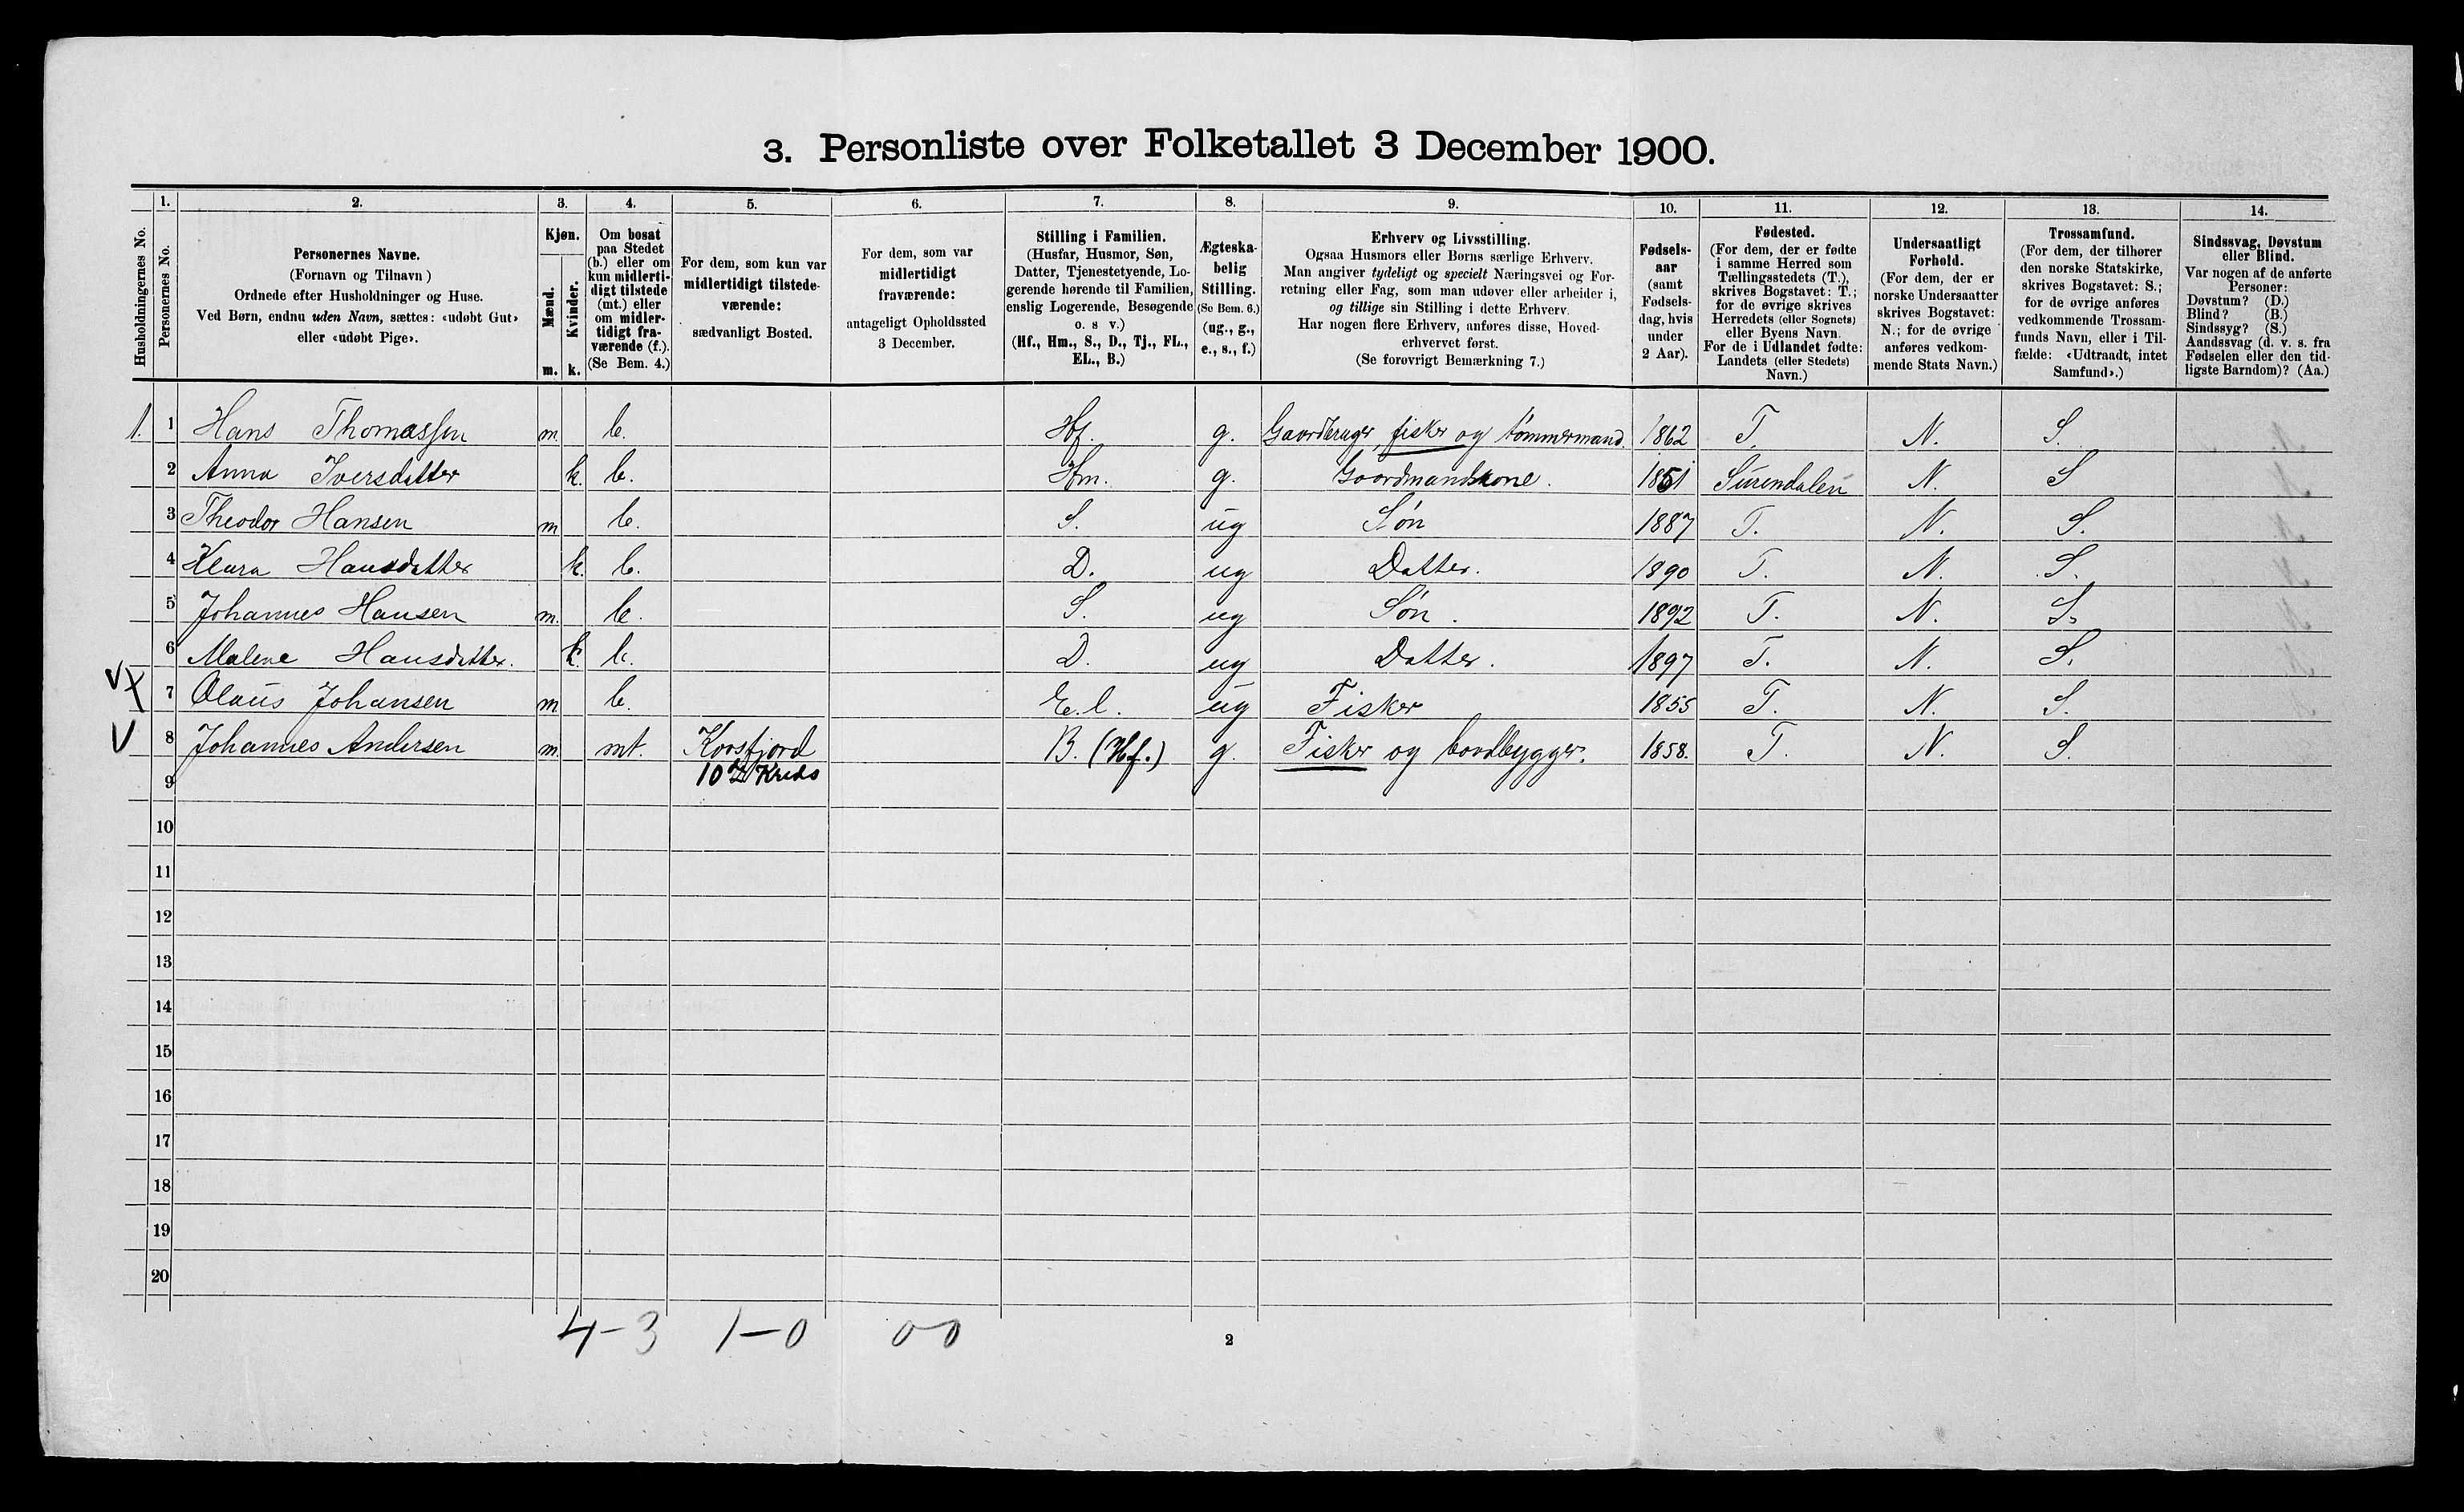 3. Personliste over Folketallet 3 December 1900.
Husholdningernes No.
1. Personernes No.
2. Personernes Navne.
(Fornavn og Tilnavn)
Ordnede efter Husholdninger og Huse.
Ved Børn, endnu uden Navn, sættes: «udøbt Gut»
eller «udøbt Pige».
3. Kjøn.
Mænd. Kvinder.
m. k.
4. Om bosat
paa Stedet
(b.) eller om
kun midlerti-
digt tilstede
(mt.) eller
om midler-
tidigt fra-
værende (f.).
(Se Bem. 4.)
5. For dem, som kun var
midlertidigt tilstede-
værende:
sædvanligt Bosted.
6. For dem, som var
midlertidigt
fraværende:
antageligt Opholdssted
3 December.
7. Stilling i Familien.
(Husfar, Husmor, Søn,
Datter, Tjenestetyende, Lo-
gerende hørende til Familien,
enslig Logerende, Besøgende
o. s v.)
(Hf., Hm., S., D., Tj., FL.,
EL., B.)
8. Ægteska-
belig
Stilling.
(Se Bem. 6.)
(ug., g.,
e., s., f.)
9. Erhverv og Livsstilling.
Ogsaa Husmors eller Børns særlige Erhverv.
Man angiver tydeligt og specielt Næringsvei og For-
retning eller Fag, som man udøver eller arbeider i,
og tillige sin Stilling i dette Erhverv.
Har nogen flere Erhverv, anføres disse, Hoved-
erhvervet først.
(Se forøvrigt Bemærkning 7.)
10. Fødsels-
aar
(samt
Fødsels-
dag, hvis
under
2 Aar).
11. Fødested.
(For dem, der er fødte
i samme Herred som
Tællingsstedets (T.),
skrives Bogstavet: T.;
for de øvrige skrives
Herredets (eller Sognets)
eller Byens Navn.
For de i Udlandet fødte:
Landets (eller Stedets)
Navn.)
12. Undersaatligt
Forhold.
(For dem, der er
norske Undersaatter
skrives Bogstavet:
N.; for de øvrige
anføres vedkom-
mende Stats Navn.)
13. Trossamfund.
(For dem, der tilhører
den norske Statskirke,
skrives Bogstavet: S.;
for de øvrige anføres
vedkommende Trossam-
funds Navn, eller i Til-
fælde: «Udtraadt, intet
Samfund».)
14. Sindssvag, Døvstum
eller Blind.
Var nogen af de anførte
Personer:
Døvstum? (D.)
Blind? (B.)
Sindssyg? (S.)
Aandssvag (d. v. s. fra
Fødselen eller den tid-
ligste Barndom)? (Aa.)
1. 1 Hans Thomassen m. b. Hf. g. Gaardbruger, fisker og tømmermand. 1862 T. N. S.
2 Anna Iversdatter k. b. Hm. g. Gaardmandskone. 1851 Surendalen N. S
3 Theodor Hansen m b. S. ug Søn 1887 T. N. S.
4 Klara Hansdatter k. b. D. ug Datter. 1890 T. N. S.
5 Johannes Hansen m. b. S. ug Søn. 1892 T. N. S.
6 Malene Hansdatter. k. b. D. ug Datter. 1897 T. N. S.
V X 7 Olaus Johansen m b. E.l. ug Fisker 1855 T. N. S.
V 8 Johannes Andersen m. mt. Korsfjord B. (Hf.) g. Fisker og baadbygger. 1858. T. N. S.
9 Kreds
10
11
12
13
14
15
16
17
18
19
20
4-3 1-0 0-0
2